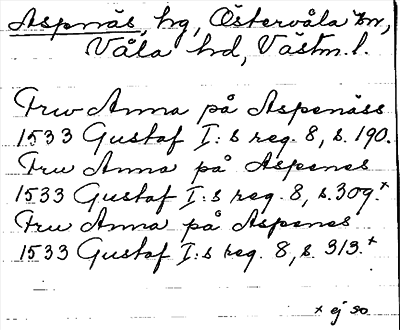 Aspenäs, hg, Östervåla sn,
Våla hd, Västm. l.
Frw Anna på Aspenäss
1533 Gustaf I:s reg. 8, s. 190.
Fru Anna på Aspenes
1533 Gustaf I:s reg. 8, s. 309.x
Fru Anna på Aspenes
1533 Gustaf I:s reg. 8, s. 313.x
x ej so